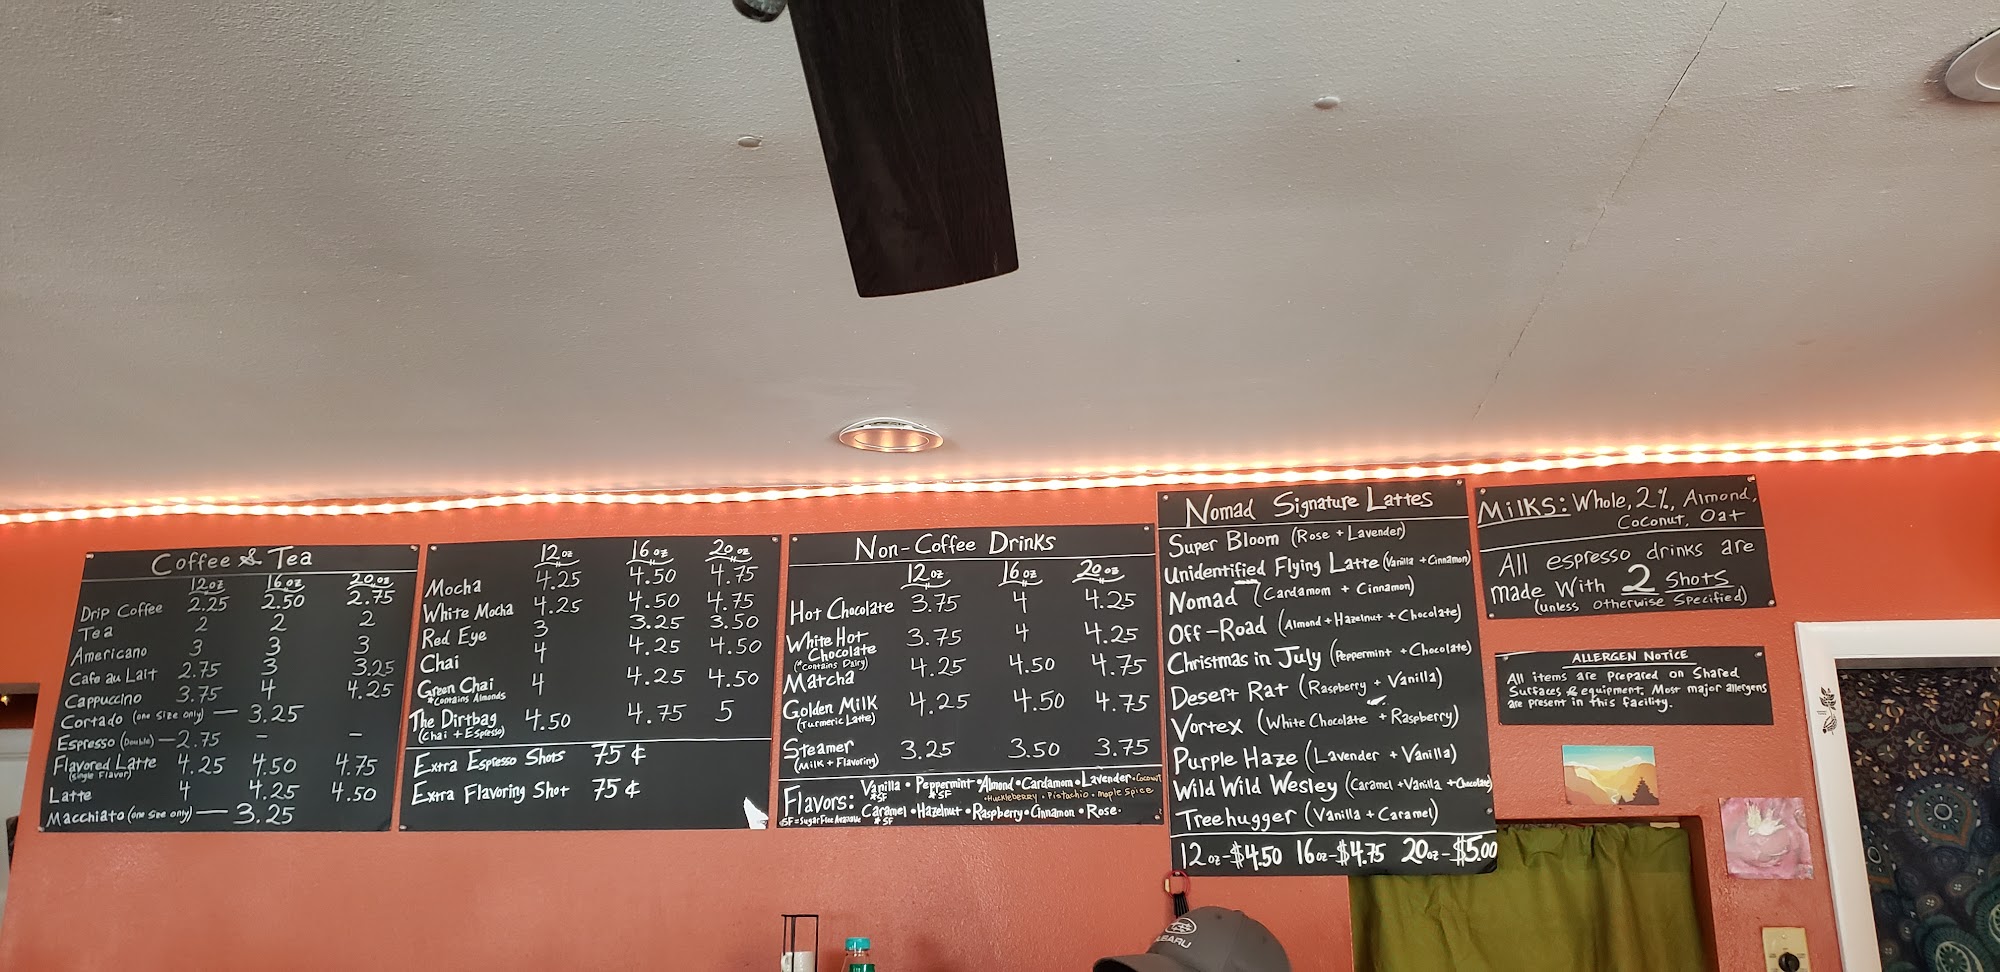 Coffee & Tea
12oz 16oz 20oz
Drip Coffee 2.25 2.50 2.75
Tea 2 2 2
Americano 3 3 3
Cafe au Lait 2.75 3 3.25
Cappuccino 3.75 4 4.25
Cortado (one size only) — 3.25
Espresso (Double) — 2.75 - -
Flavored Latte 4.25 4.50 4.75
(Single Flavor)
Latte 4 4.25 4.50
Macchiato (one size only) — 3.25
12oz 16oz 20oz
Mocha 4.25 4.50 4.75
White Mocha 4.25 4.50 4.75
Red Eye 3 3.25 3.50
Chai 4 4.25 4.50
Green Chai 4 4.25 4.50
*Contains Almonds
The Dirtbag 4.50 4.75 5
(Chai + Espresso)
Extra Espresso Shots 75¢
Extra Flavoring Shot 75¢
Non-Coffee Drinks
12oz 16oz 20oz
Hot Chocolate 3.75 4 4.25
White Hot 3.75 4 4.25
Chocolate
(*Contains Dairy)
Matcha 4.25 4.50 4.75
Golden Milk 4.25 4.50 4.75
(Turmeric Latte)
Steamer 3.25 3.50 3.75
(Milk + Flavoring)
Flavors: Vanilla • Peppermint • Almond • Cardamom • Lavender • Coconut
*SF *SF • Huckleberry • Pistachio • Maple Spice
Caramel • Hazelnut • Raspberry • Cinnamon • Rose •
*SF = Sugar Free Available *SF
Nomad Signature Lattes
Super Bloom (Rose + Lavender)
Unidentified Flying Latte (Vanilla + Cinnamon)
Nomad (Cardamom + Cinnamon)
Off-Road (Almond + Hazelnut + Chocolate)
Christmas in July (Peppermint + Chocolate)
Desert Rat (Raspberry + Vanilla)
Vortex (White Chocolate + Raspberry)
Purple Haze (Lavender + Vanilla)
Wild Wild Wesley (Caramel + Vanilla + Chocolate)
Treehugger (Vanilla + Caramel)
12oz - $4.50 16oz - $4.75 20oz - $5.00
Milks: Whole, 2%, Almond,
Coconut, Oat
All espresso drinks are
made with 2 shots
(unless otherwise specified)
ALLERGEN NOTICE
All items are Prepared on Shared
Surfaces & equipment. Most major allergens
are present in this facility.
SUBARU